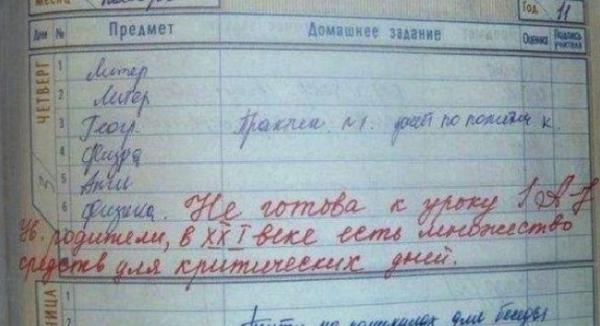 месяц
Год 11
Дни № Предмет Домашнее задание Оценка Подпись учителя
ЧЕТВЕРГ
1 Литер
2 Литер
3 Геогр. Практич. №1.
4 Физра
5 Англ
6 Физика. Не готова к уроку
Ув. родители, в XXI веке есть множество
средств для критических дней.
НИЦА
1
2 для беседы